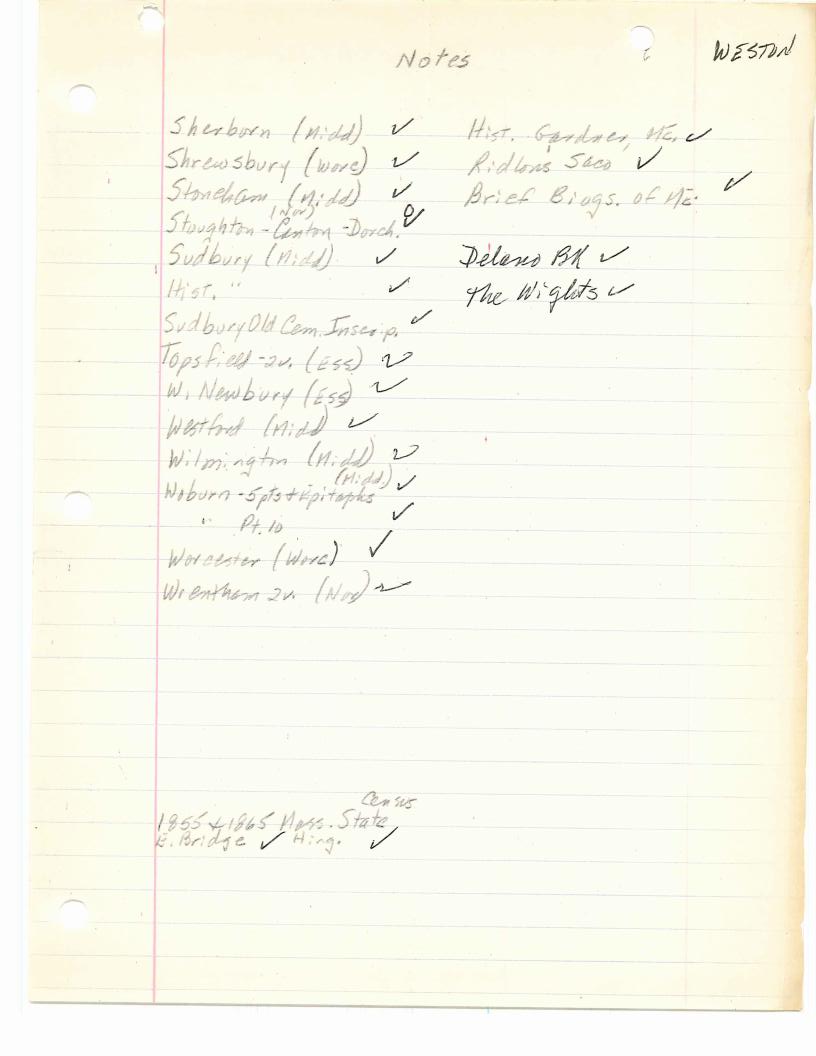 Notes
WESTON
Sherborn (Midd) ✓
Shrewsbury (Worc) ✓
Stoneham (Midd) ✓
(Nor)
Stoughton - Canton - Dorch. ✓
Sudbury (Midd) ✓
Hist. " ✓
Sudbury Old Cem. Inscrip. ✓
Topsfield - 2v. (Ess) ✓
W. Newbury (Ess) ✓
Westford (Midd) ✓
Wilmington (Midd) ✓
(Midd)
Woburn - 5 pts + Epitaphs ✓
" Pt. 10 ✓
Worcester (Worc) ✓
Wrentham 2v. (Nor) ✓
Hist. Gardner, Me. ✓
Ridlon's Saco ✓
Brief Biogs. of Me. ✓
Delano BK ✓
The Wights ✓
Census
1855 + 1865 Mass. State
E. Bridge ✓ Hing. ✓